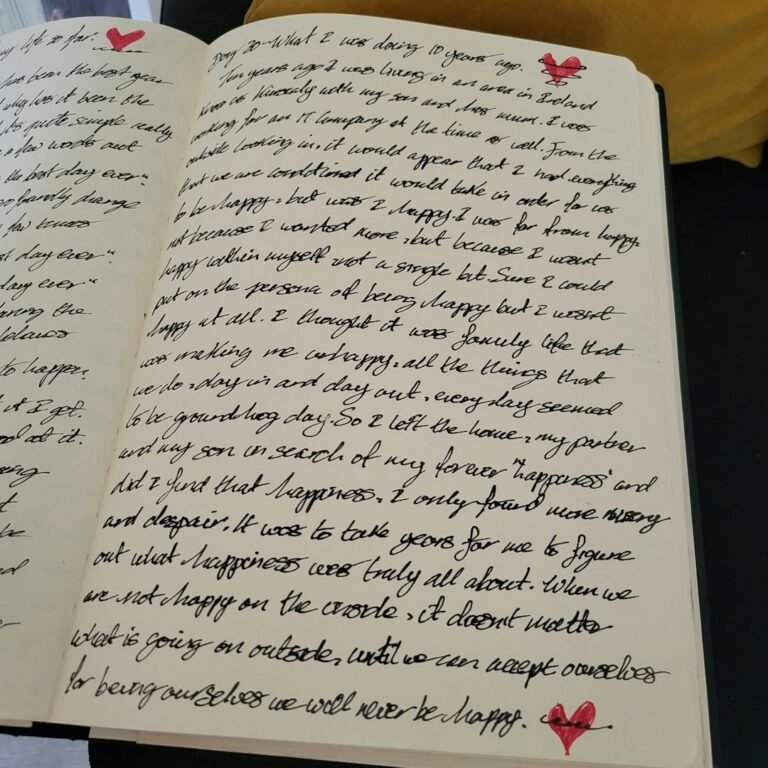 y life so far.
has been the best year
why has it been the
its quite simple really
a few words out
the best day ever"
so fondly change
few times
st day ever"
day ever"
during the
to happen.
t it I get.
od at it.
ing
t
be
Day 30 - What I was doing 10 years ago.
Ten years ago I was living in an area in Ireland
know as with my son and his mum. I was
working for an IT Company at the time as well. From the
outside looking in, it would appear that I had everything
that we are conditioned it would take in order for us
to be happy, but was I happy. I was far from happy,
not because I wanted more, but because I wasnt
happy within myself not a single bit. Sure I could
put on the persona of being happy but I wasnt
happy at all. I thought it was family life that
was making me unhappy, all the things that
we do, day in and day out, every day seemed
to be groundhog day. So I left the home, my partner
and my son in search of my forever "happiness" and
did I find that happiness, I only found more misery
and despair. It was to take years for me to figure
out what happiness was truly all about. When we
are not happy on the inside, it doesnt matter
what is going on outside, until we can accept ourselves
for being ourselves we will never be happy.